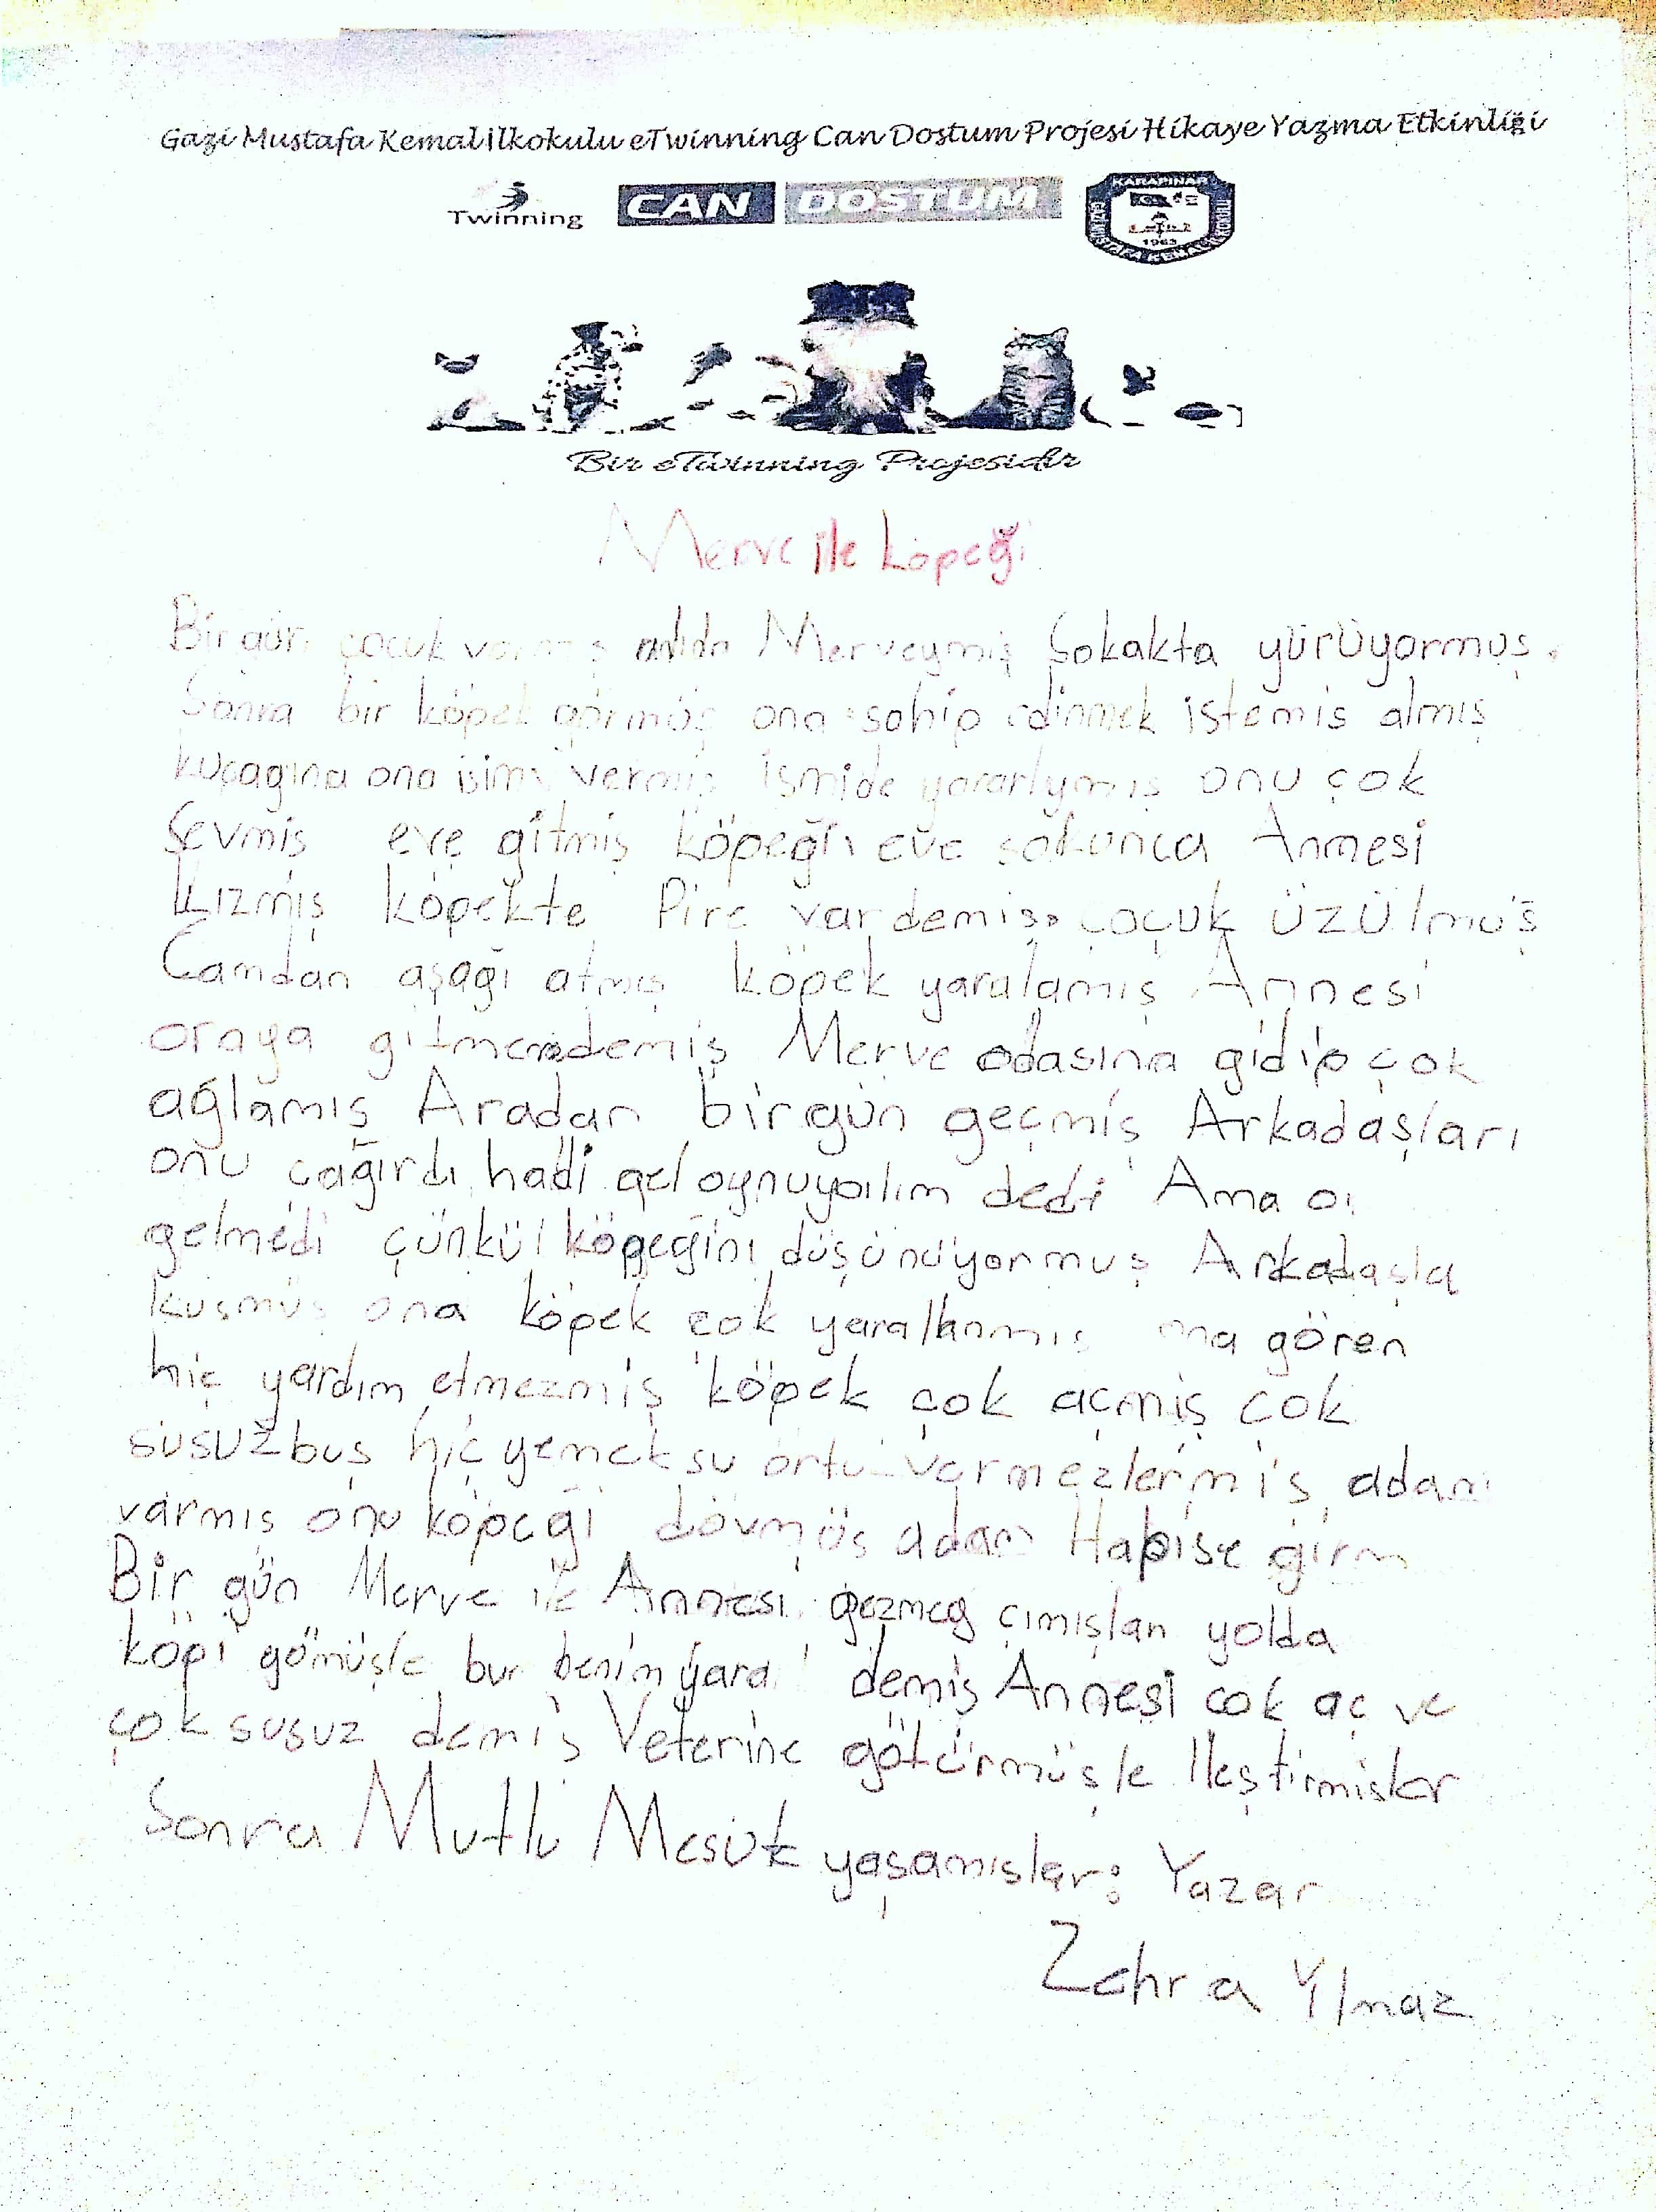 Gazi Mustafa Kemal İlkokulu eTwinning Can Dostum Projesi Hikaye Yazma Etkinliği
Twinning CAN DOSTUM KARAPINAR
1963
Bir eTwinning Projesidir
Merve ile köpeği
Bir gün çocuk varmış Merveymiş Sokakta yürüyormuş.
Sonra bir köpek görmüş ona sahip edinmek istemis almış
kucağına ona isim vermiş ismide onu çok
Sevmiş eve gitmiş köpeği eve sokunca Annesi
kızmış köpekte Pire vardemiş. çoçuk üzülmüş
Camdan aşağı atmış köpek yaralamış Annesi
oraya gitmemdemiş Merve odasına gidip çok
ağlamış Aradan birgün geçmiş Arkadaşları
onu çağırdı hadi gel oynuyalım dedi Ama o
gelmedi çünkül köpeğini düşünüyormuş Arkadaşla
küsmüş ona köpek çok yarallanmış ona gören
hiç yardım etmezmiş köpek çok açmiş çok
susuzbuş hiç yemek su örtü vermezlermiş adam
varmış onu köpeği dövmüş adam Hapise girm
Bir gün Merve ile Annesi gezmeg çımışlan yolda
köpi gömüşle bu benim yara demiş Annesi cok aç ve
çok susuz demiş Veterine götürmüşle Ileştirmisler
Sonra Mutlu Mesut yaşamıslar: Yazar
Zehra Yılmaz